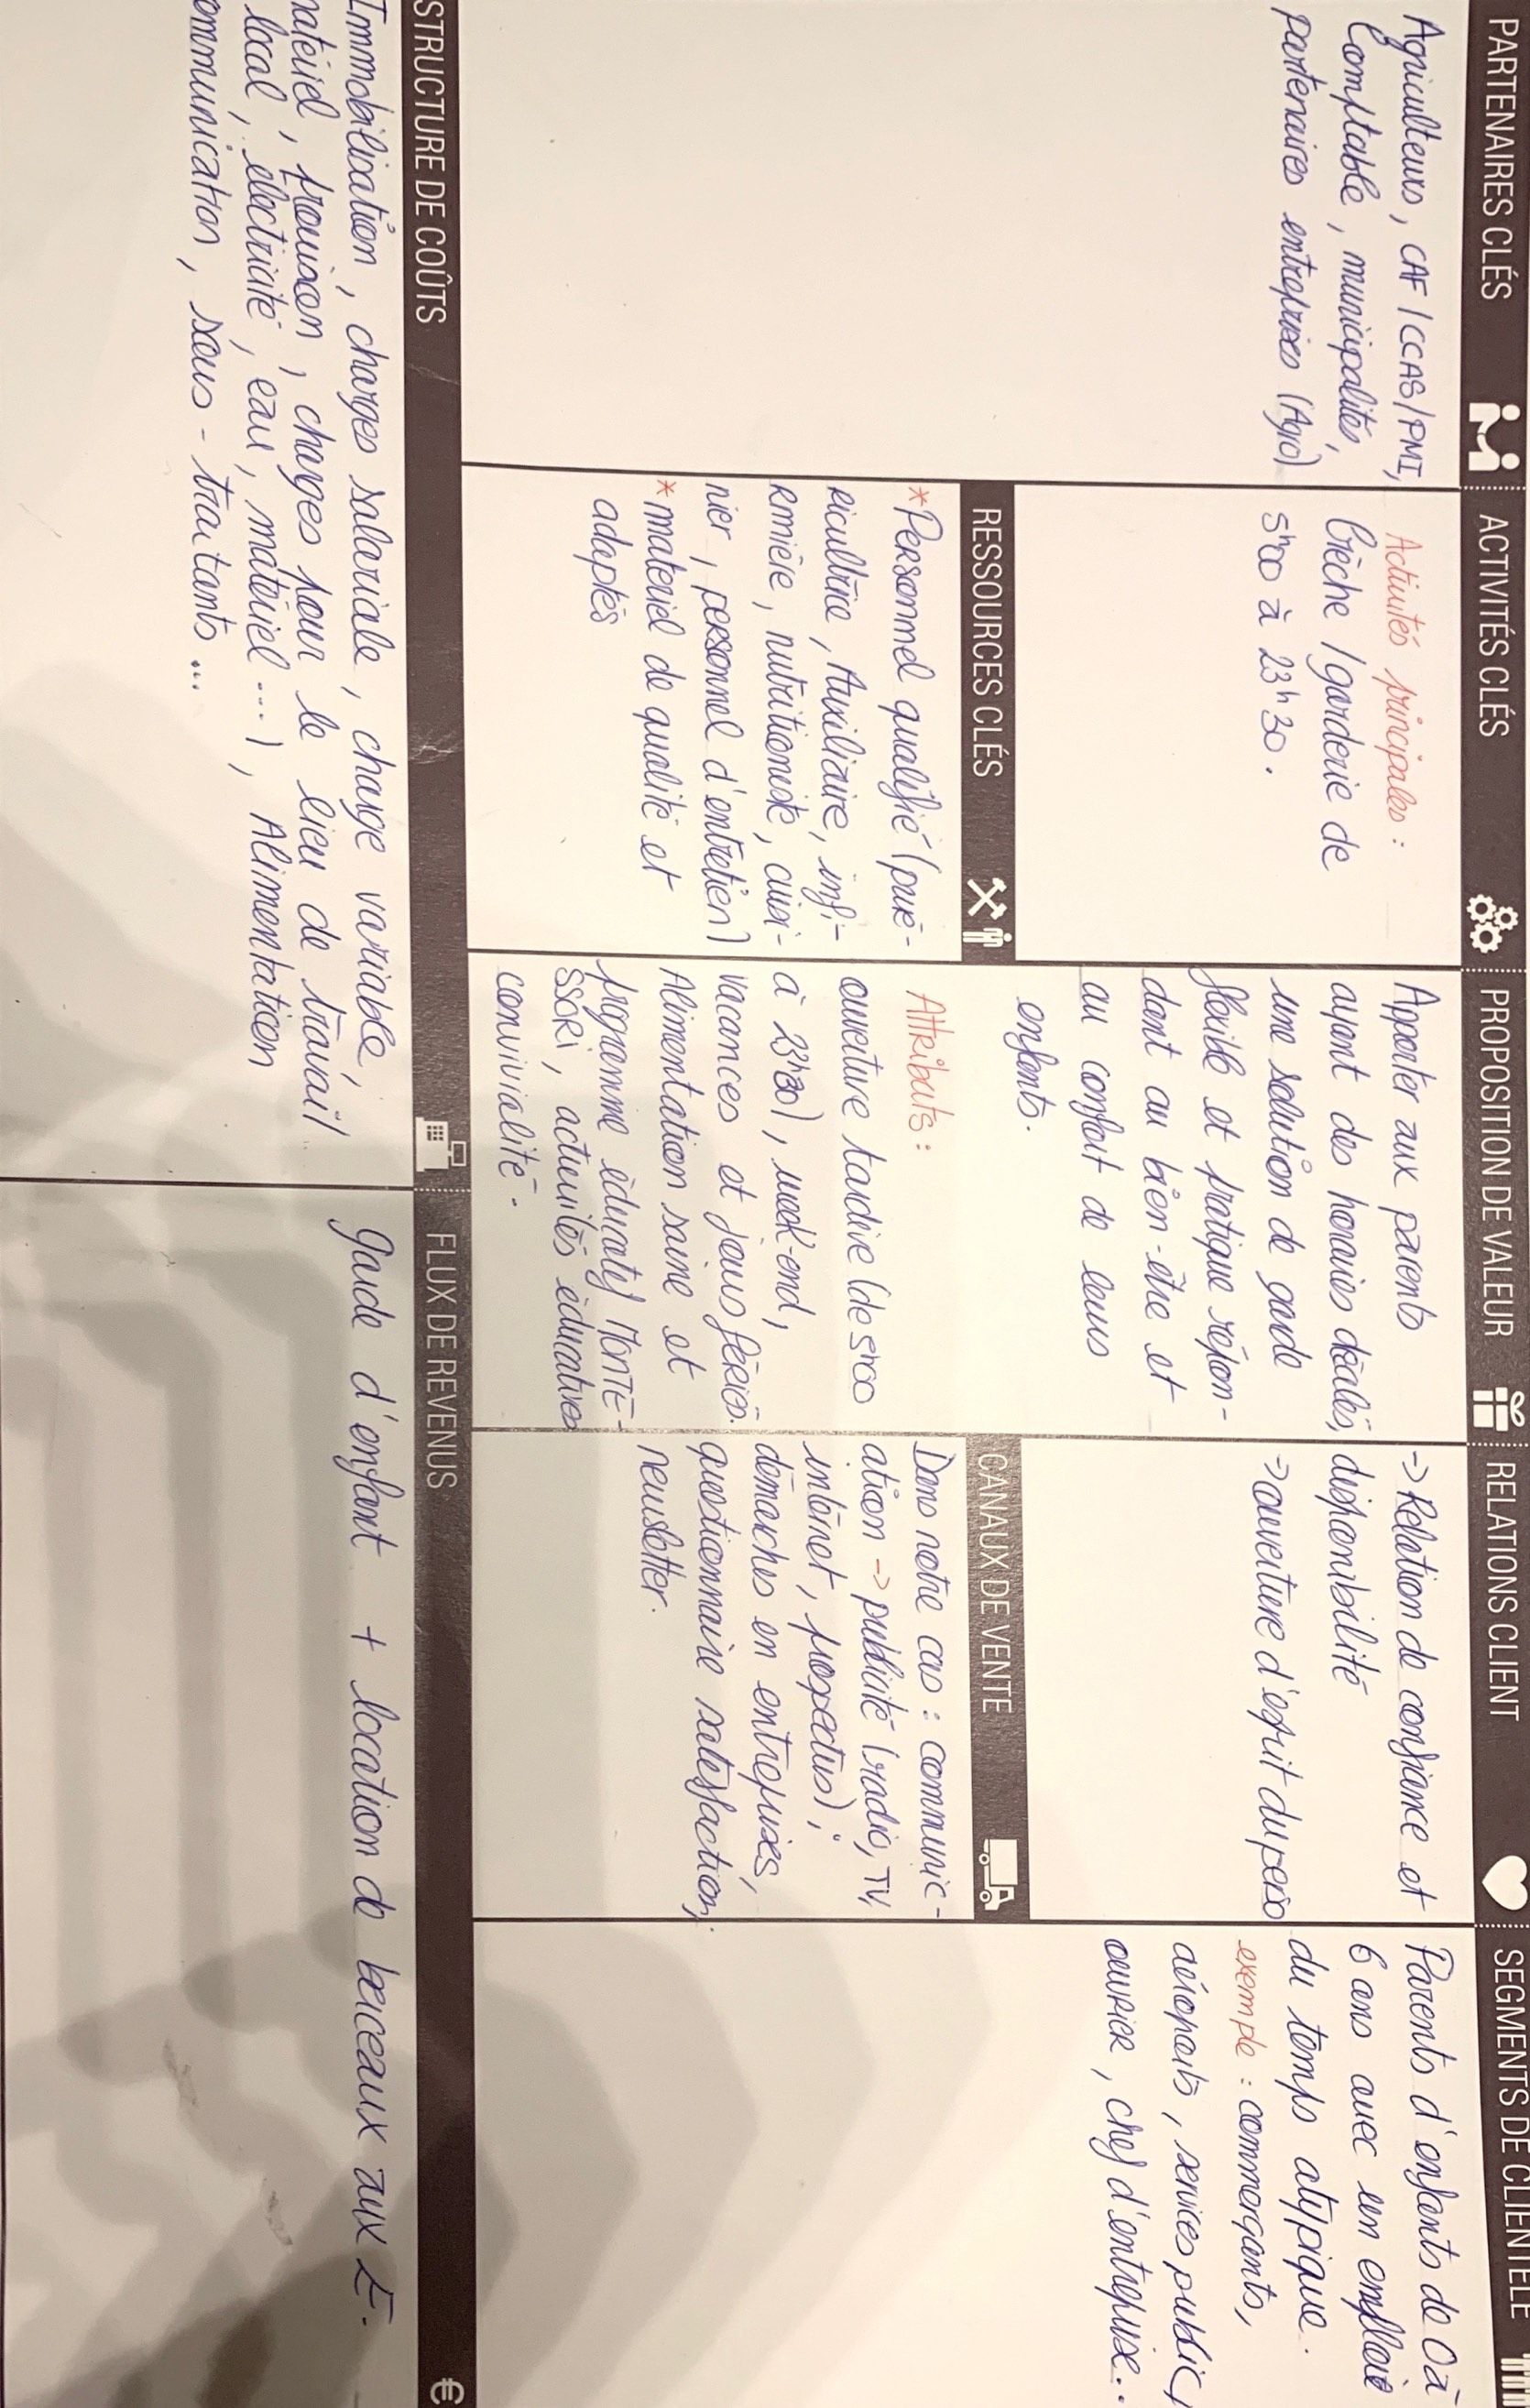 PARTENAIRES CLÉS
Agriculteurs, CAF/CCAS/PMI,
Comptable, municipalités,
partenaires entreprises (Agro)
ACTIVITÉS CLÉS
Activités principales :
Crèche / garderie de
5h00 à 23h30.
RESSOURCES CLÉS
* Personnel qualifié (pué-
ricultrice, Auxiliaire, infi-
rmière, nutritionniste, cuisi-
nier, personnel d'entretien)
* materiel de qualité et
adaptés
PROPOSITION DE VALEUR
Apporter aux parents
ayant des horaires décalés,
une solution de garde
flexible et pratique répon-
dant au bien-être et
au confort de leurs
enfants.
Attributs :
ouverture tardive (de 5h00
à 23h30), week-end,
vacances et jours fériés.
Alimentation saine et
programme éducatif MONTE-
SSORI, activités éducatives
convivialité.
RELATIONS CLIENT
-> Relation de confiance et
disponibilité
-> ouverture d'esprit du perso
CANAUX DE VENTE
Dans notre cas : communic-
ation -> publicité (radio, TV,
internet, prospectus),
démarches en entreprises,
questionnaire satisfaction,
newsletter.
SEGMENTS DE CLIENTÈLE
Parents d'enfants de 0 à
6 ans avec un emploie
du temps atypique.
exemple : commerçants,
aéroports, services public,
ouvrier, chef d'entreprise...
STRUCTURE DE COÛTS
Immobilisation, charges salariale, charge variable,
matériel, provision, charges pour le lieu de travail
local, électricité, eau, matériel ...), Alimentation
ommunication, sous-traitants ...
FLUX DE REVENUS
garde d'enfant + location de berceaux aux E.